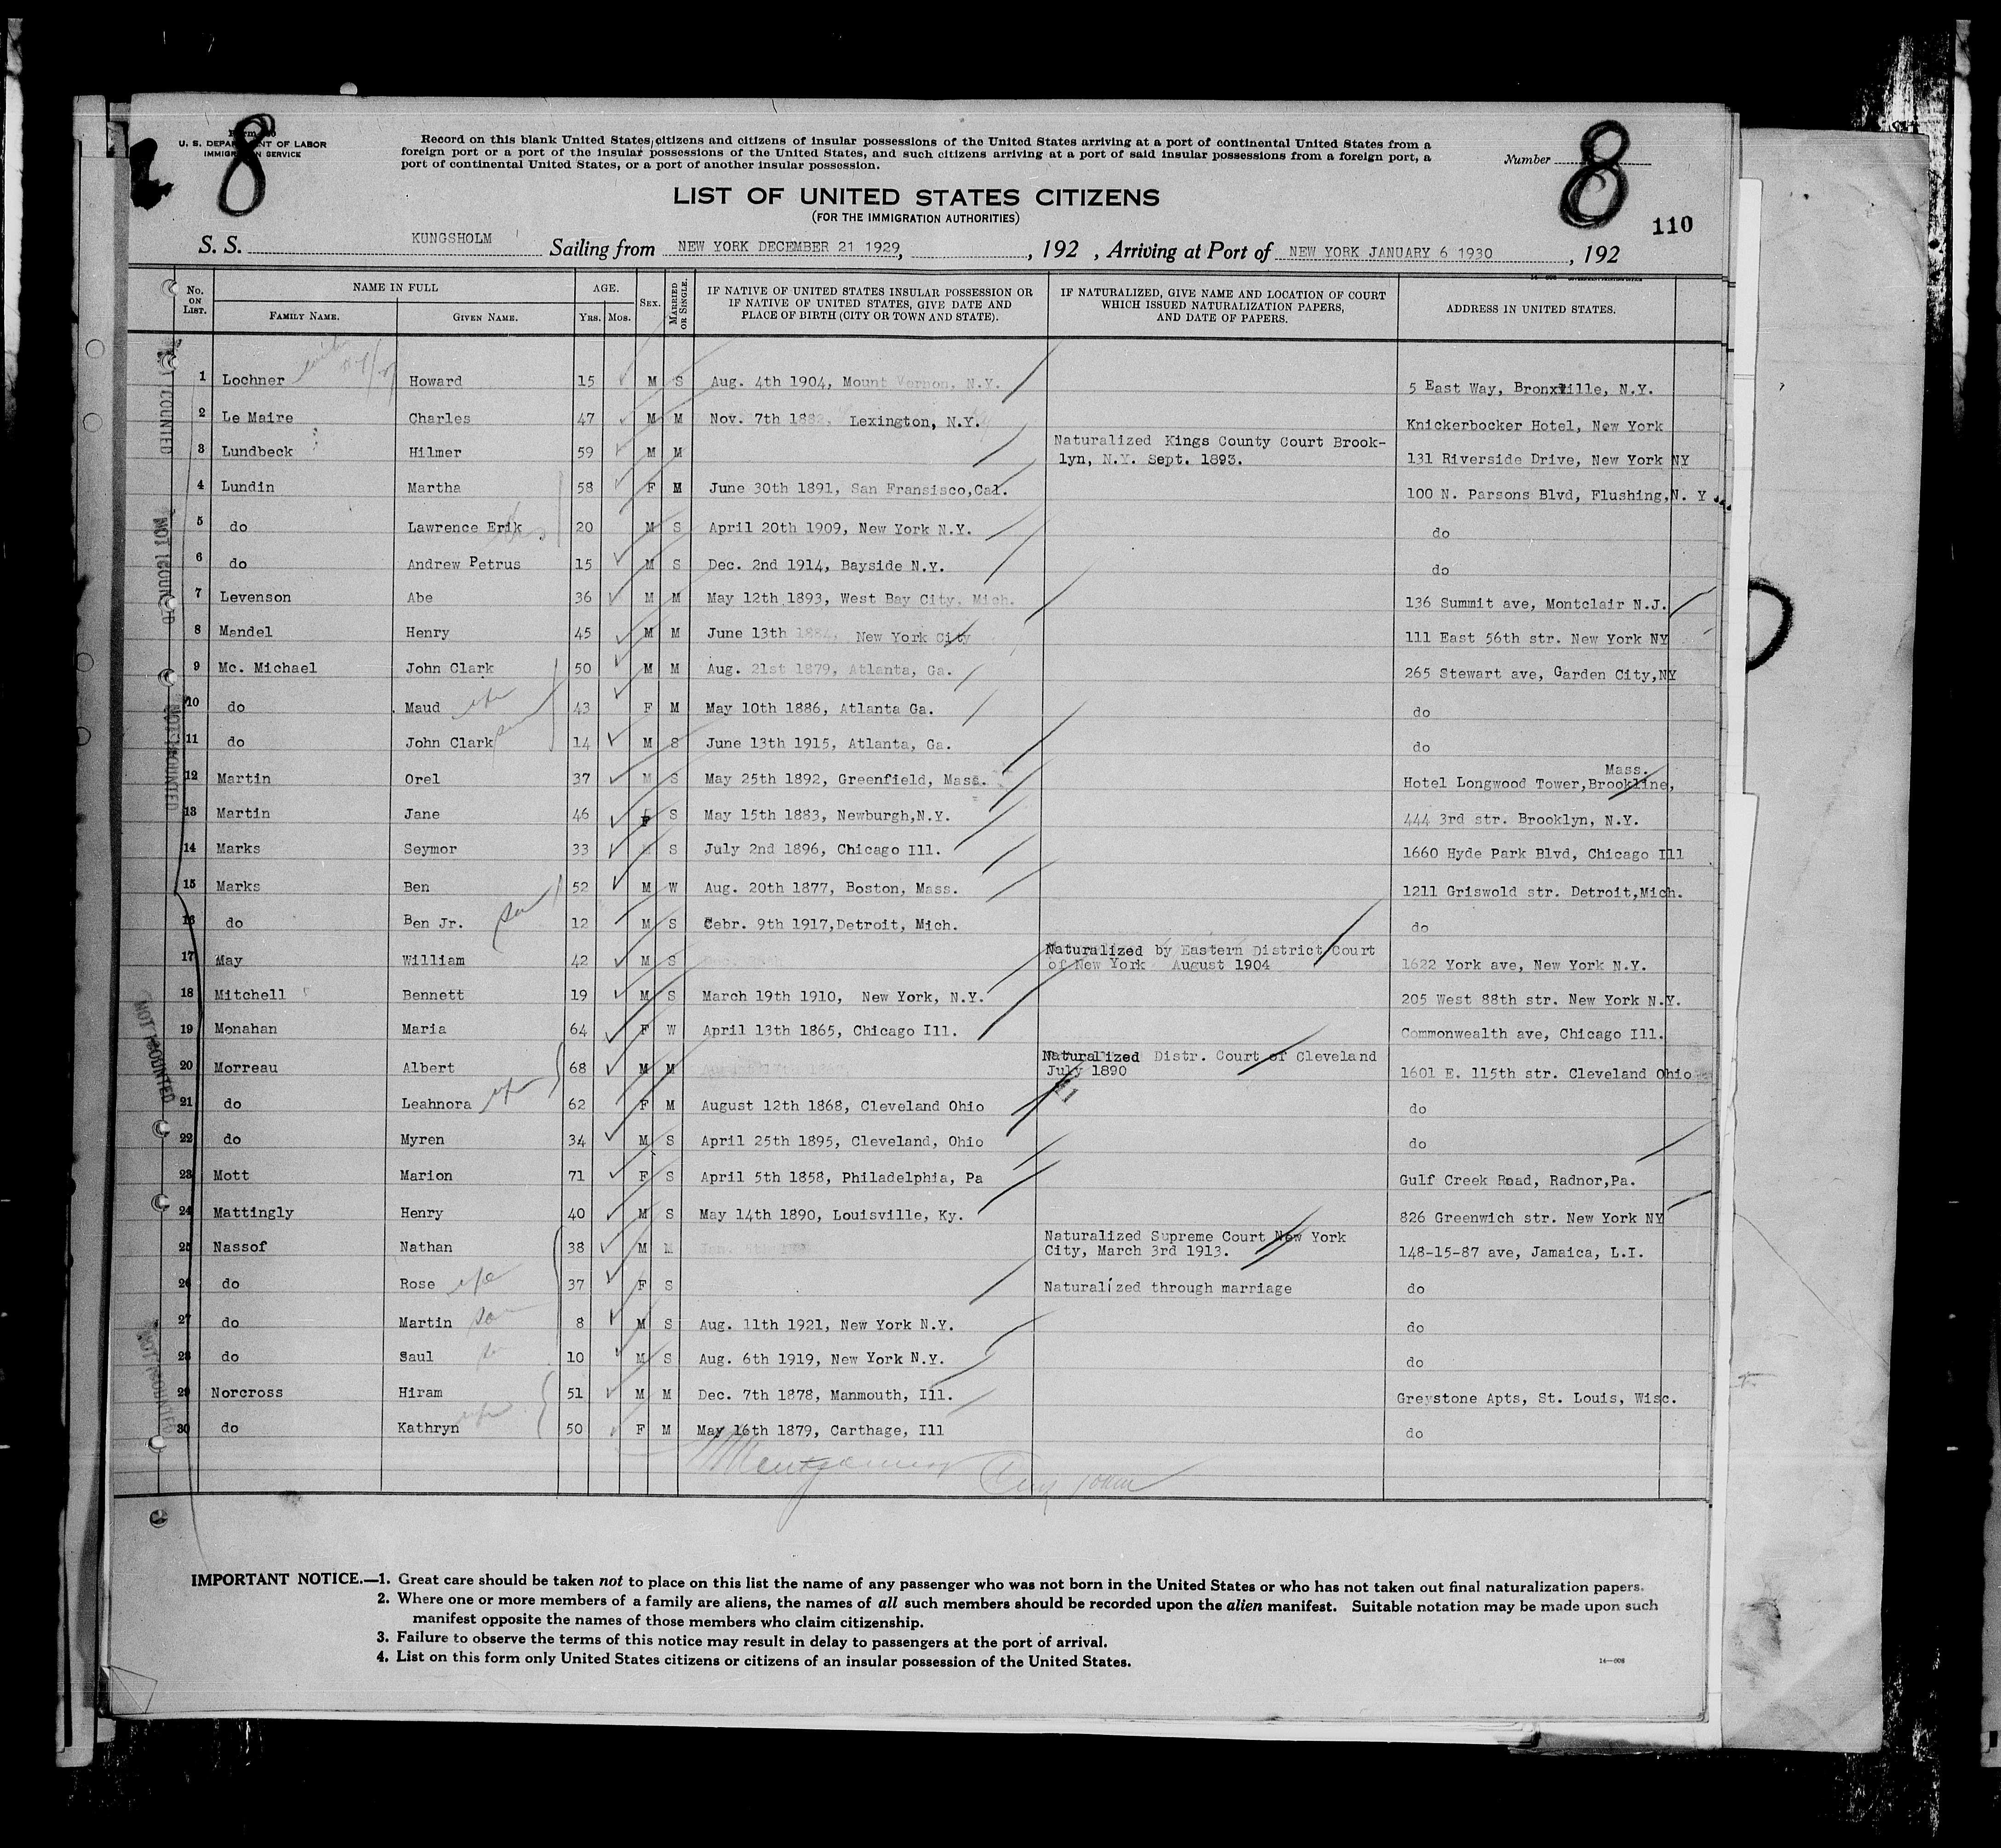 8
U. S. DEPARTMENT OF LABOR
IMMIGRATION SERVICE
Record on this blank United States citizens and citizens of insular possessions of the United States arriving at a port of continental United States from a
foreign port or a port of the insular possessions of the United States, and such citizens arriving at a port of said insular possessions from a foreign port, a
port of continental United States, or a port of another insular possession.
Number
8
LIST OF UNITED STATES CITIZENS
(FOR THE IMMIGRATION AUTHORITIES)
110
S. S. KUNGSHOLM Sailing from NEW YORK DECEMBER 21 1929, , 192 , Arriving at Port of NEW YORK JANUARY 6 1930 , 192
No. ON LIST. NAME IN FULL FAMILY NAME. GIVEN NAME. AGE. YRS. MOS. SEX. MARRIED OR SINGLE. IF NATIVE OF UNITED STATES INSULAR POSSESSION OR IF NATIVE OF UNITED STATES, GIVE DATE AND PLACE OF BIRTH (CITY OR TOWN AND STATE). IF NATURALIZED, GIVE NAME AND LOCATION OF COURT WHICH ISSUED NATURALIZATION PAPERS, AND DATE OF PAPERS. ADDRESS IN UNITED STATES.
1 Lochner Howard 15 M S Aug. 4th 1904, Mount Vernon, N.Y. 5 East Way, Bronxville, N.Y.
2 Le Maire Charles 47 M M Nov. 7th 1882, Lexington, N.Y. Knickerbocker Hotel, New York
3 Lundbeck Hilmer 59 M M Naturalized Kings County Court Brook-
lyn, N.Y. Sept. 1893. 131 Riverside Drive, New York NY
4 Lundin Martha 58 F M June 30th 1891, San Fransisco,Cal. 100 N. Parsons Blvd, Flushing,N. Y
5 do Lawrence Erik 20 M S April 20th 1909, New York N.Y. do
6 do Andrew Petrus 15 M S Dec. 2nd 1914, Bayside N.Y. do
7 Levenson Abe 36 M M May 12th 1893, West Bay City, Mich. 136 Summit ave, Montclair N.J.
8 Mandel Henry 45 M M June 13th 1884, New York City 111 East 56th str. New York NY
9 Mc. Michael John Clark 50 M M Aug. 21st 1879, Atlanta, Ga. 265 Stewart ave, Garden City,NY
10 do Maud wife 43 F M May 10th 1886, Atlanta Ga. do
11 do John Clark son 14 M S June 13th 1915, Atlanta, Ga. do
12 Martin Orel 37 M S May 25th 1892, Greenfield, Mass. Hotel Longwood Tower,Brookline, Mass.
13 Martin Jane 46 F S May 15th 1883, Newburgh,N.Y. 444 3rd str. Brooklyn, N.Y.
14 Marks Seymor 33 S July 2nd 1896, Chicago Ill. 1660 Hyde Park Blvd, Chicago Ill
15 Marks Ben 52 M W Aug. 20th 1877, Boston, Mass. 1211 Griswold str. Detroit,Mich.
16 do Ben Jr. son 12 M S Febr. 9th 1917,Detroit, Mich. do
17 May William 42 M S Naturalized by Eastern District Court
of New York August 1904 1622 York ave, New York N.Y.
18 Mitchell Bennett 19 M S March 19th 1910, New York, N.Y. 205 West 88th str. New York N.Y.
19 Monahan Maria 64 F W April 13th 1865, Chicago Ill. Commonwealth ave, Chicago Ill.
20 Morreau Albert 68 M M Naturalized Distr. Court of Cleveland
July 1890 1601 E. 115th str. Cleveland Ohio
21 do Leahnora wife 62 F M August 12th 1868, Cleveland Ohio do
22 do Myren 34 M S April 25th 1895, Cleveland, Ohio do
23 Mott Marion 71 F S April 5th 1858, Philadelphia, Pa Gulf Creek Road, Radnor,Pa.
24 Mattingly Henry 40 M S May 14th 1890, Louisville, Ky. 826 Greenwich str. New York NY
25 Nassof Nathan 38 M M Naturalized Supreme Court New York
City, March 3rd 1913. 148-15-87 ave, Jamaica, L.I.
26 do Rose wife 37 F S Naturalized through marriage do
27 do Martin son 8 M S Aug. 11th 1921, New York N.Y. do
28 do Saul 10 M S Aug. 6th 1919, New York N.Y. do
29 Norcross Hiram 51 M M Dec. 7th 1878, Manmouth, Ill. Greystone Apts, St. Louis, Wisc.
30 do Kathryn wife 50 F M May 16th 1879, Carthage, Ill do
NOT COUNTED
NOT COUNTED
NOT COUNTED
NOT COUNTED
NOT COUNTED
IMPORTANT NOTICE.—1. Great care should be taken not to place on this list the name of any passenger who was not born in the United States or who has not taken out final naturalization papers.
2. Where one or more members of a family are aliens, the names of all such members should be recorded upon the alien manifest. Suitable notation may be made upon such
manifest opposite the names of those members who claim citizenship.
3. Failure to observe the terms of this notice may result in delay to passengers at the port of arrival.
4. List on this form only United States citizens or citizens of an insular possession of the United States.
14—608